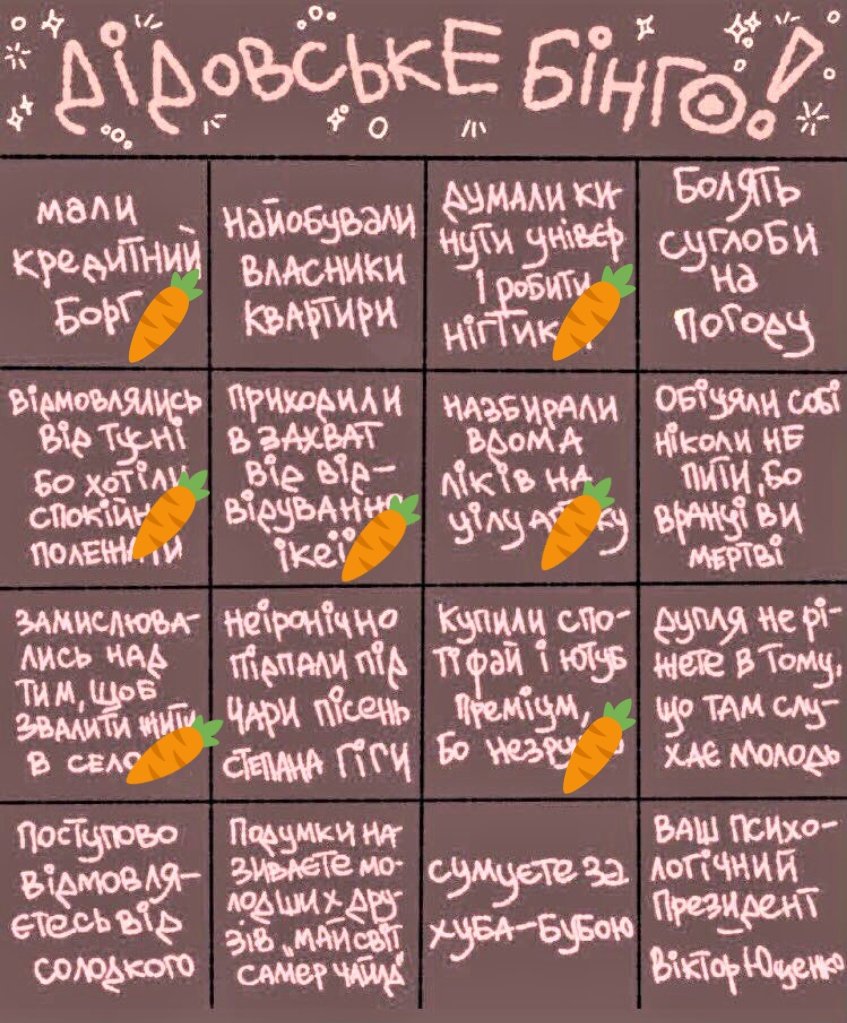 ДІДОВСЬКЕ БІНГО!
мали
кредитний
борг
найобували
власники
квартири
думали ки-
нути унівєр
і робити
болять
суглоби
на
погоду
відмовлялись
від тусні
бо хотіли
приходили
в захват
від від-
відування
ікеї
назбирали
вдома
ліків на
цілу
обіцяли собі
ніколи не
пити, бо
вранці ви
мертві
замислюва-
лись над
тим, щоб
звалити жити
в село
неіронічно
підпали під
чари пісень
степана гіги
купили спо-
тіфай і ютуб
преміум,
бо
дупля не рі-
жете в тому,
що там слу-
хає молодь
поступово
відмовля-
єтесь від
солодкого
подумки на-
зиваєте мо-
лодших дру-
зів „майсвіт
самер чайлд"
сумуєте за
хуба-бубою
ваш психо-
логічний
президент
–
віктор Ющенко